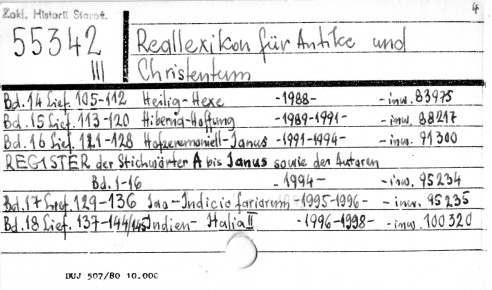 Zakl. Historii Staroż. 4
55342 Reallexikon für Antike und
III Christentum
Bd. 14 Lief. 105-112 Heilig-Hexe -1988- -inw. 83975
Bd. 15 Lief. 113-120 Hibernia-Hoffnung -1989-1991- -inw. 88217
Bd. 16 Lief. 121-128 Hofzeremoniell-Janus -1991-1994- -inw. 91300
REGISTER der Stichwörter A bis Janus sowie der Autoren
Bd. 1-16 -1994- -inw. 95234
Bd. 17 Lief. 129-136 Iao-Indicia fariarum -1995-1996- -inw. 95235
Bd. 18 Lief. 137-144/145 Indien-Italia II -1996-1998- -inw. 100320
DUJ 507/80 10.000